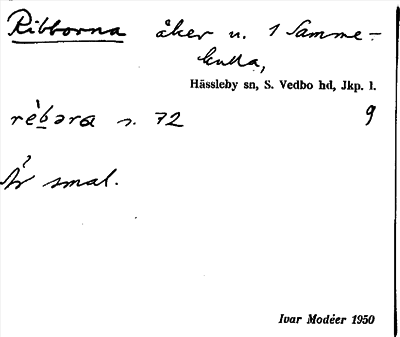 Ribborna åker n. 1 Samme-
kulla,
Hässleby sn, S. Vedbo hd, Jkp. l.
rèbəra s. 72 9
Är smal.
Ivar Modéer 1950